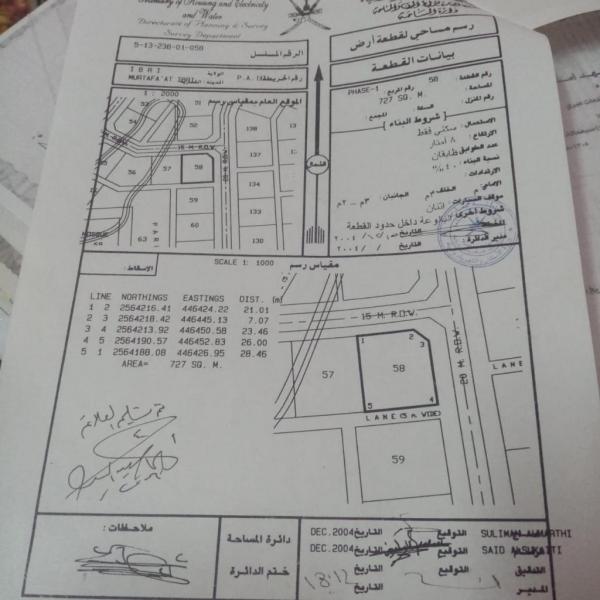 Ministry of Housing and Electricity
and Water
Directorate of Planning & Survey
Survey Department
رسم مساحي لقطعة أرض
بيانات القطعة
5-13-238-01-058
الرقم المسلسل
IBRI
الولاية
MURTAFA'AT IBRI
المدينة
رقم الخريطة
P.A.
PHASE-1
رقم القطعة: 58
رقم المربع:
المساحة: 727 SQ. M.
رقم المنزل:
السكة:
المجمع:
1 : 2000
الموقع العام بمقياس رسم
53
52
51
138
131
15 M. ROW
57
58
137
59
134
60
PARK
63
64
130
MOSQUE
الشمال
{ شروط البناء }
الاستعمال: سكني فقط
الارتفاع: ٨ أمتار
عدد الطوابق: طابقان
نسبة البناء: ٤٠٪
الارتدادات:
الأمامي ٣م الخلف ٣م الجانبان: ٣م - ٢م
موقف السيارات: اثنان
شروط أخرى: بالوعة داخل حدود القطعة
المخطط
التاريخ
٢٠٠٤
مدير الدائرة:
التاريخ
٢٠٠٤ / /
SCALE 1: 1000
مقياس رسم
الاسقاط:
LINE NORTHINGS EASTINGS DIST. (m)
1 2 2564216.41 446424.22 21.01
2 3 2564218.42 446445.13 7.07
3 4 2564213.92 446450.58 23.46
4 5 2564190.57 446452.83 26.00
5 1 2564188.08 446426.95 28.46
AREA= 727 SQ. M.
15 M. R.O.W.
20 M. R.O.W.
LANE
1
2
3
57
58
5
4
LANE (5 m WIDE)
59
تم تسليم العلائم
ملاحظات:
دائرة المساحة
ختم الدائرة
DEC.2004 التاريخ
التوقيع
SULIMAN ALMARTHI
DEC.2004 التاريخ
التوقيع
SAID
18.12
التاريخ
التوقيع
التدقيق
التاريخ
المدير